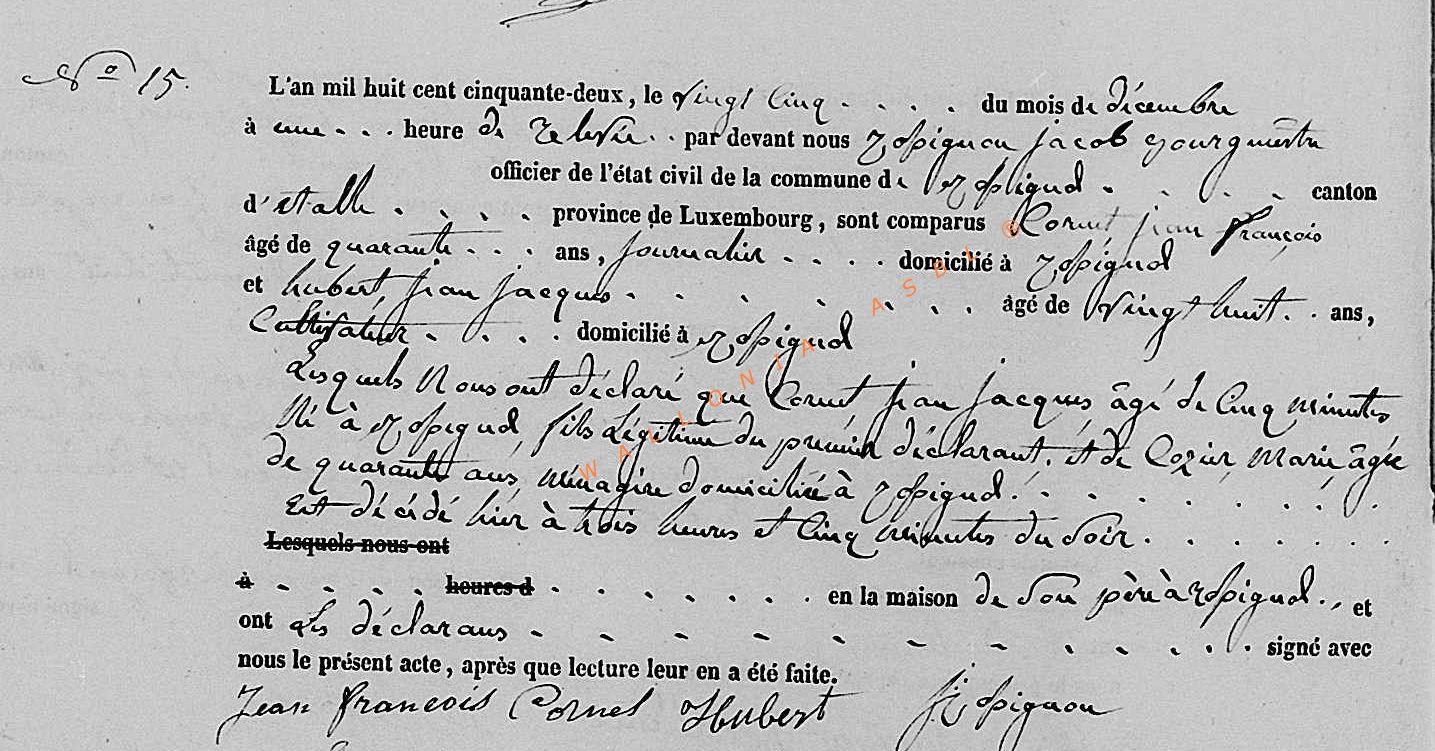 No 15.
L'an mil huit cent cinquante-deux, le vingt cinq . . . . du mois de décembre
à une . . . heure de relevée . . par devant nous Rossignon jacob Bourgmestre
officier de l'état civil de la commune de Rossignol . . . . canton
d'étalle . . . . province de Luxembourg, sont comparus Cornet jean françois
âgé de quarante . . . ans, journalier . . . . domicilié à Rossignol
et hubert jean jacques . . . . . . . . âgé de vingt huit . . ans,
Cultivateur . . . . domicilié à Rossignol
Lesquels Nous ont déclaré que Cornet jean jacques âgé de cinq minutes
Né à Rossignol, fils Légitime du prémier déclarant, et de Cozier Marie âgée
de quarante ans, ménagère domiciliée à Rossignol . . . . . . .
Est décédé hier à trois heures et cinq minutes du soir . . . . . .
Lesquels nous ont
à . . . . heures d . . . . . . . en la maison de son père à Rossignol . , et
ont Les déclarans - - - - - - - . . . . signé avec
nous le présent acte, après que lecture leur en a été faite.
Jean francois Cornet Hubert J Rossignon
WALLONIA ASBL ©